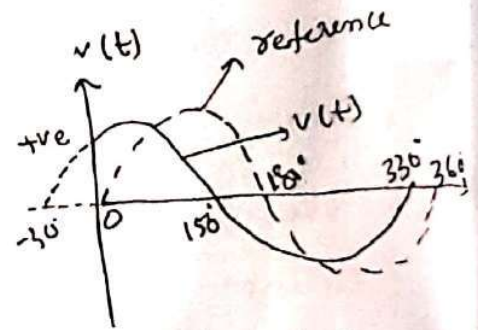 v(t)
reference
+ve
v(t)
180°
330° 360°
-30° 0 150°